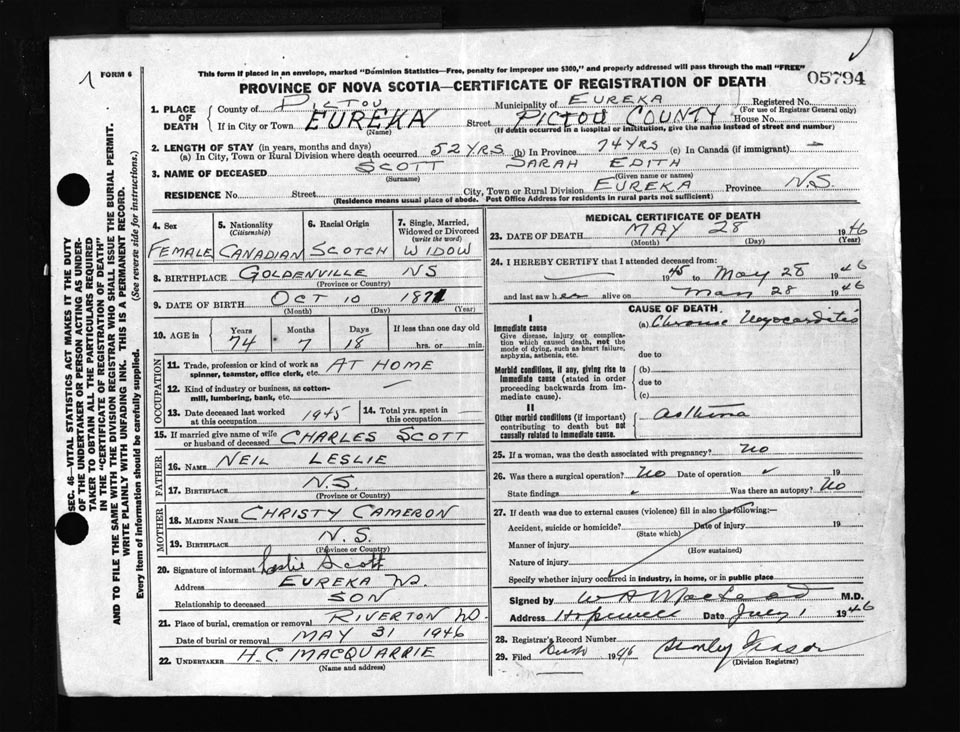 FORM 6
This form if placed in an envelope, marked "Dominion Statistics—Free, penalty for improper use $300," and properly addressed will pass through the mail "FREE"
05794
PROVINCE OF NOVA SCOTIA—CERTIFICATE OF REGISTRATION OF DEATH
1. PLACE OF DEATH County of PICTOU Municipality of EUREKA Registered No.
(For use of Registrar General only)
If in City or Town EUREKA Street PICTOU COUNTY House No.
(Name) (If death occurred in a hospital or institution, give the name instead of street and number)
2. LENGTH OF STAY (in years, months and days)
(a) In City, Town or Rural Division where death occurred 52 YRS (b) In Province 74 YRS (c) In Canada (if immigrant) —
3. NAME OF DECEASED SCOTT SARAH EDITH
(Surname) (Given name or names)
RESIDENCE No. Street City, Town or Rural Division EUREKA Province N.S.
(Residence means usual place of abode. Post Office Address for residents in rural parts not sufficient)
4. Sex 5. Nationality (Citizenship) 6. Racial Origin 7. Single, Married, Widowed or Divorced (write the word)
FEMALE CANADIAN SCOTCH WIDOW
8. BIRTHPLACE GOLDENVILLE NS
(Province or Country)
9. DATE OF BIRTH OCT 10 1871
(Month) (Day) (Year)
10. AGE in Years Months Days If less than one day old
74 7 18 hrs. or min.
OCCUPATION
11. Trade, profession or kind of work as spinner, teamster, office clerk, etc. AT HOME
12. Kind of industry or business, as cotton-mill, lumbering, bank, etc. —
13. Date deceased last worked at this occupation 1945 14. Total yrs. spent in this occupation —
15. If married give name of wife or husband of deceased CHARLES SCOTT
FATHER
16. NAME NEIL LESLIE
17. BIRTHPLACE N.S.
(Province or Country)
MOTHER
18. MAIDEN NAME CHRISTY CAMERON
19. BIRTHPLACE N.S.
(Province or Country)
20. Signature of informant Leslie Scott
Address EUREKA NS.
Relationship to deceased SON
21. Place of burial, cremation or removal RIVERTON NS.
Date of burial or removal MAY 31 1946
22. UNDERTAKER H.C. MACQUARRIE
(Name and address)
MEDICAL CERTIFICATE OF DEATH
23. DATE OF DEATH MAY 28 1946
(Month) (Day) (Year)
24. I HEREBY CERTIFY that I attended deceased from:
— 1945 to May 28 1946
and last saw her alive on May 28 1946
CAUSE OF DEATH
I
Immediate cause
Give disease, injury or complication which caused death, not the mode of dying, such as heart failure, asphyxia, asthenia, etc.
(a) Chronic Myocarditis
due to
Morbid conditions, if any, giving rise to immediate cause (stated in order proceeding backwards from immediate cause).
(b)
due to
(c)
II
Other morbid conditions (if important) contributing to death but not causally related to immediate cause.
asthma
25. If a woman, was the death associated with pregnancy? No
26. Was there a surgical operation? No Date of operation 19
State findings Was there an autopsy? No
27. If death was due to external causes (violence) fill in also the following:—
Accident, suicide or homicide? Date of injury 19
(State which)
Manner of injury
(How sustained)
Nature of injury
Specify whether injury occurred in industry, in home, or in public place
Signed by W A MacLeod M.D.
Address Hopewell Date July 1 1946
28. Registrar's Record Number
29. Filed 1946 Stanley Fraser
(Division Registrar)
SEC. 46—VITAL STATISTICS ACT MAKES IT THE DUTY
OF THE UNDERTAKER OR PERSON ACTING AS UNDER-
TAKER TO OBTAIN ALL THE PARTICULARS REQUIRED
IN THE "CERTIFICATE OF REGISTRATION OF DEATH"
AND TO FILE THE SAME WITH THE DIVISION REGISTRAR WHO SHALL ISSUE THE BURIAL PERMIT.
WRITE PLAINLY WITH UNFADING INK. THIS IS A PERMANENT RECORD.
Every item of information should be carefully supplied. (See reverse side for instructions.)